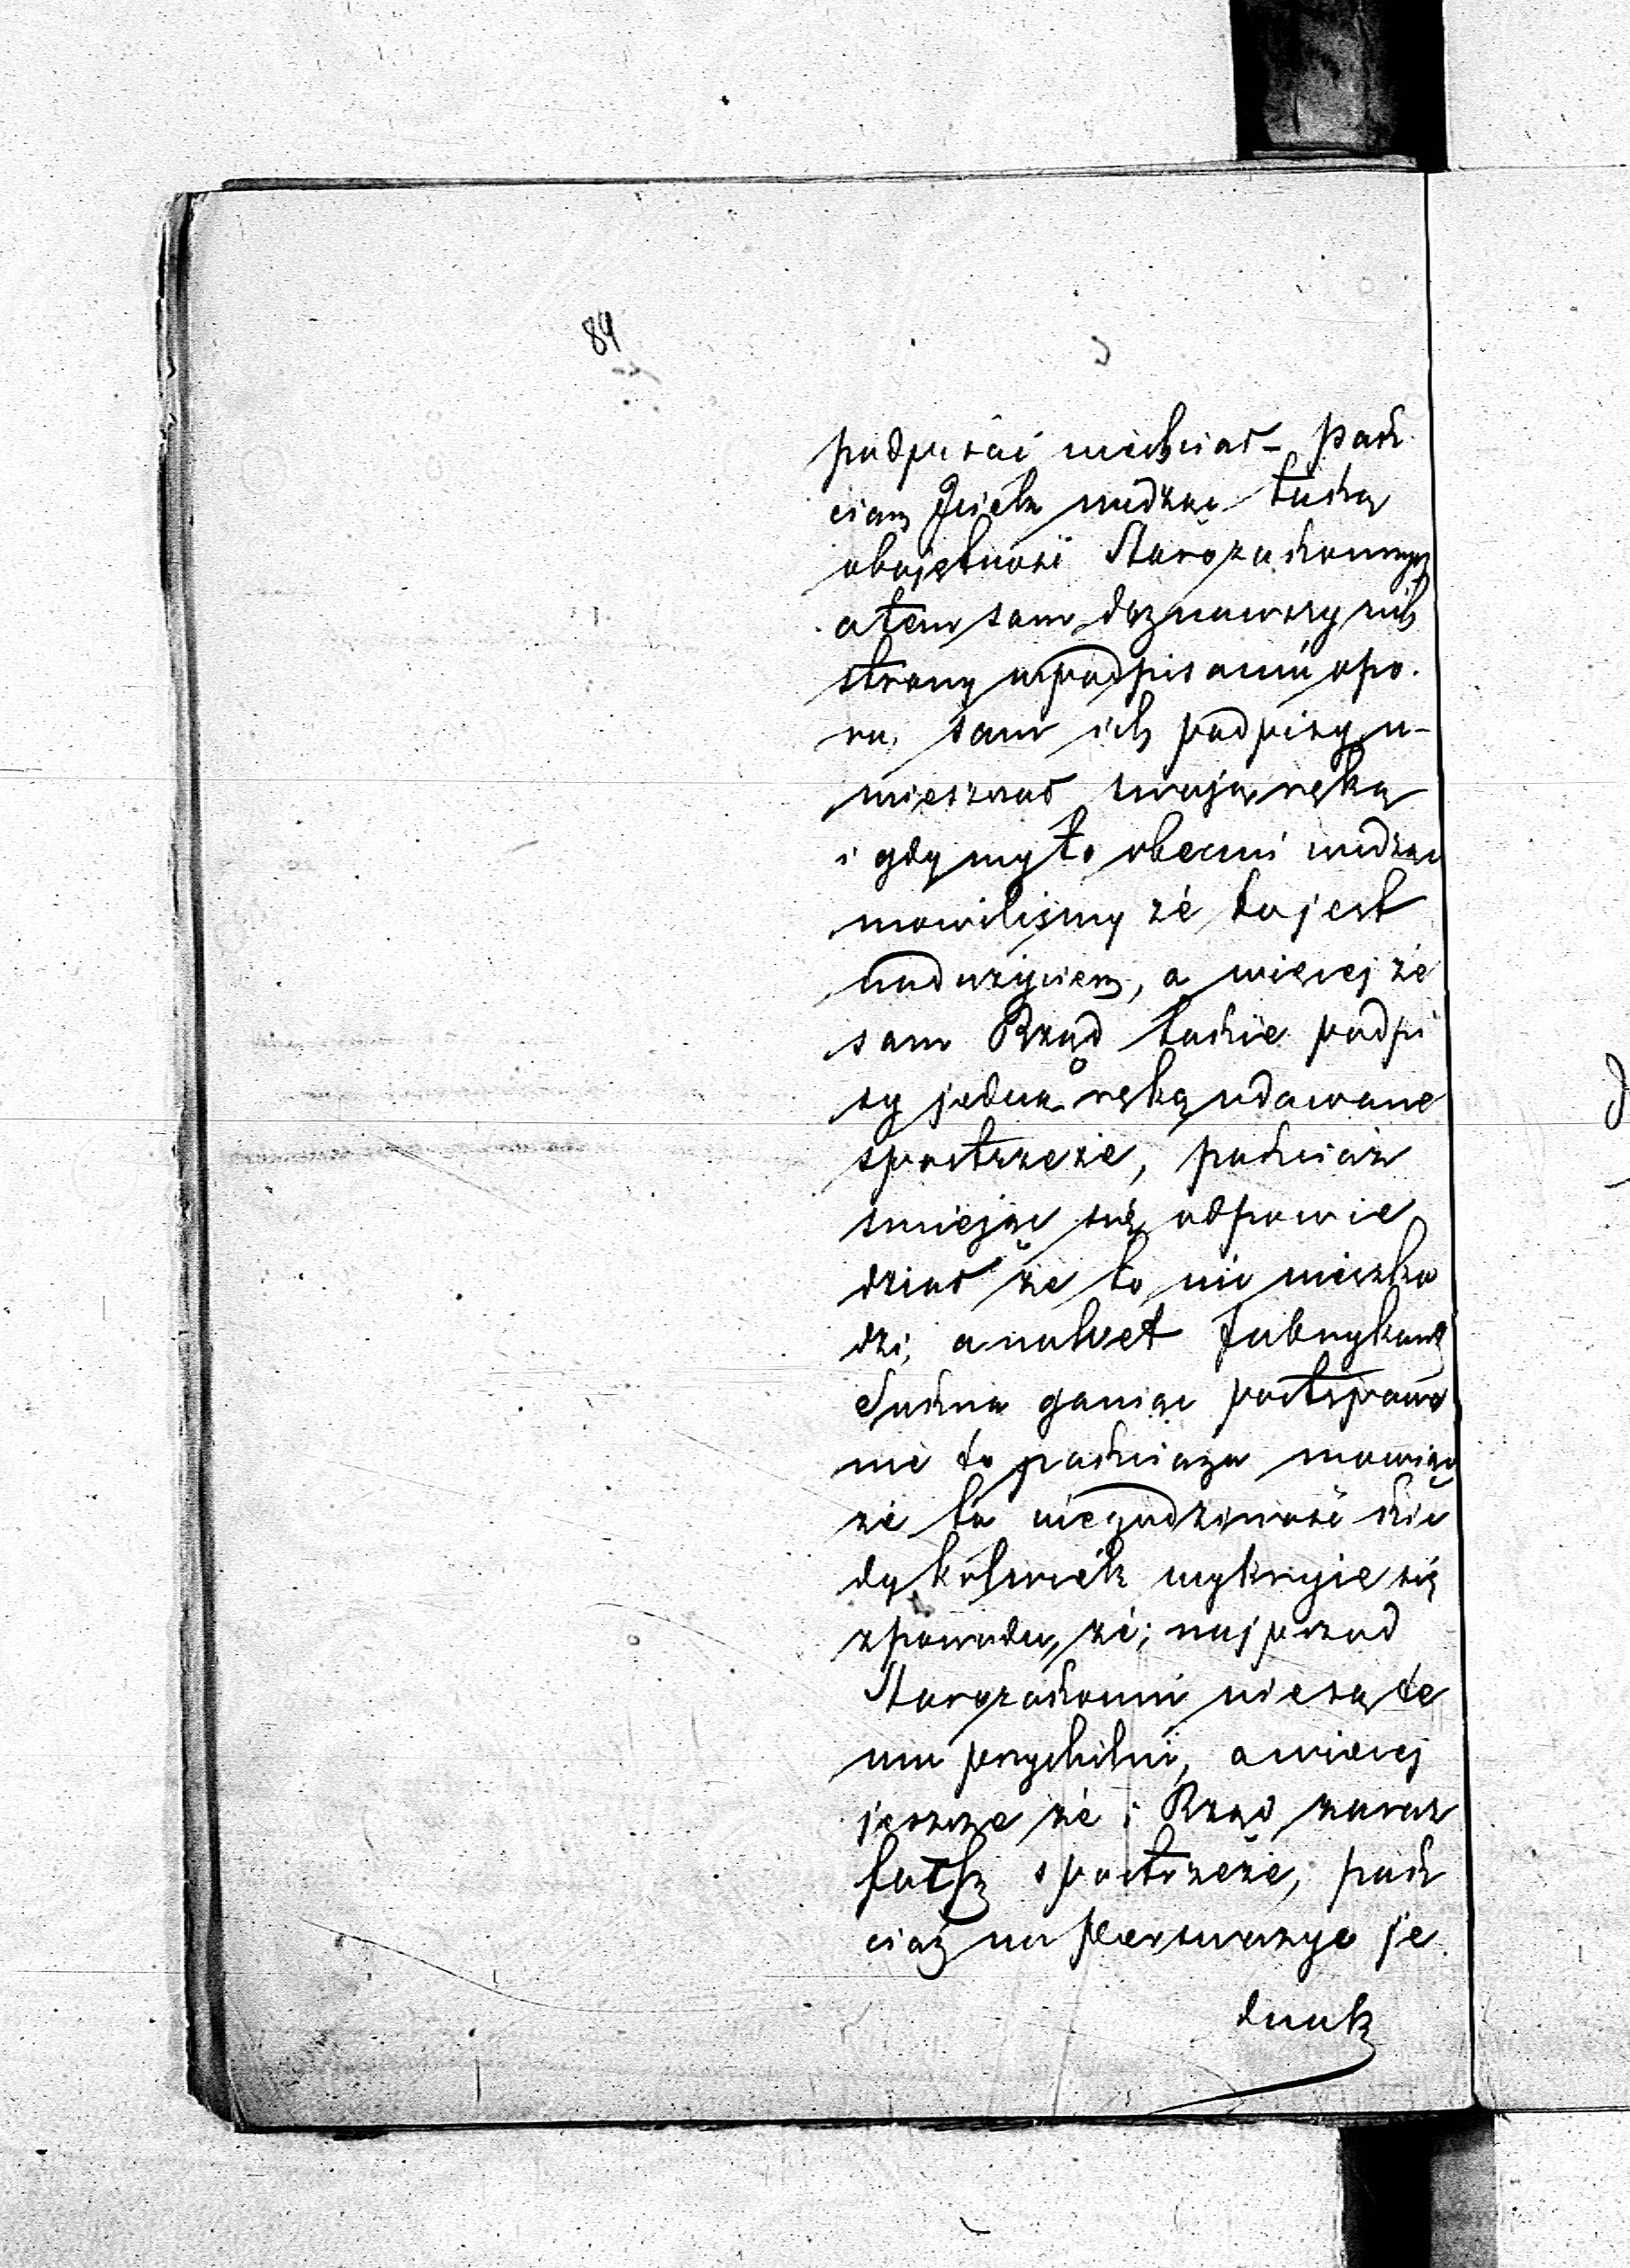 84
podpisać niechciał – Pach
ciarz Jciek widząc taką
obojętność Starozakonnych
a tem sam doznawszy z ich
strony w podpisaniu opo.
ru, sam ich podpisy u-
mieszczał swoją ręką
i gdy my to obecni widząc
mowiliśmy że to jest
nadużyciem, a więcej że
sam Rząd takie podpi
sy jedną ręką udawane
spostrzeże, pachciarz
smiejąc się odpowie
dział że to nic nieszko
dzi, a nawet fabrykant
Sukna ganiąc postępowa
nie to pachciarza mowiąc
że ta niegodziwość kie
dykolwiek wykryje się
z powodu, że; najprzod
Starozakonni nie są te
mu przychilni, a więcej
jeszcze że i Rząd zaraz
fałsz spostrzeże, pach
ciarz na perswazye je
dnak